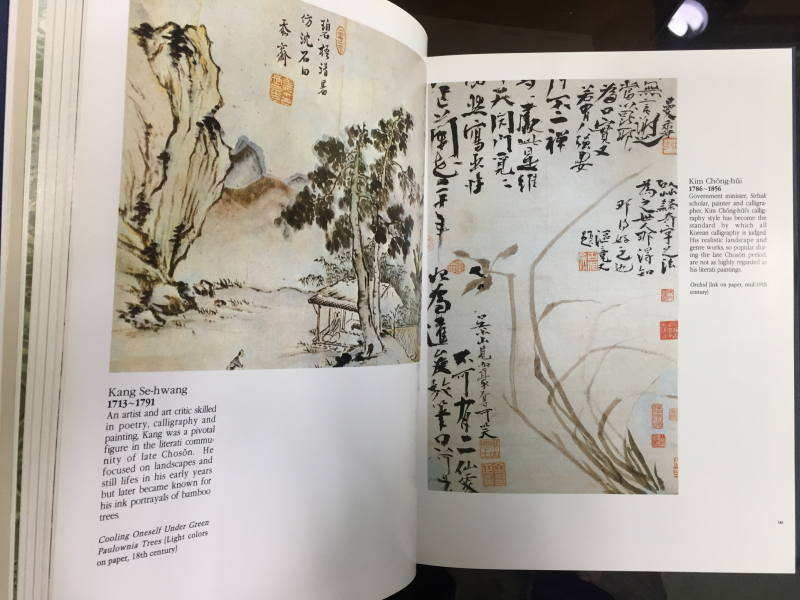 碧梧清暑
仿沈石田
忝齋
Kang Se-hwang
1713~1791
An artist and art critic skilled
in poetry, calligraphy and
painting, Kang was a pivotal
figure in the literati commu-
nity of late Chosŏn. He
focused on landscapes and
still lifes in his early years
but later became known for
his ink portrayals of bamboo
trees.
Cooling Oneself Under Green
Paulownia Trees (Light colors
on paper, 18th century)
然寫出性
閉門覓二
處此是維
不二禪
若有人强要
爲口實又
當以毘耶
無言謝之
曼香
以草隸奇字之法
爲之世人那得知
那得好之也
漚竟又
題
始爲達俊放筆只可
不可有二仙客
吳小山見而豪奪可笑
Kim Chŏng-hŭi
1786~1856
Government minister, Sirhak
scholar, painter and calligra-
pher, Kim Chŏng-hŭi's callig-
raphy style has become the
standard by which all
Korean calligraphy is judged.
His realistic landscape and
genre works, so popular dur-
ing the late Chosŏn period,
are not as highly regarded as
his literati paintings.
Orchid (Ink on paper, mid-19th
century)